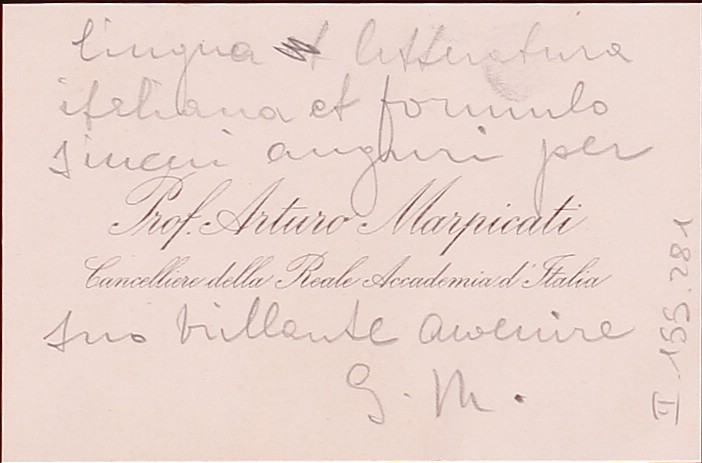 lingua et letteratura
italiana et formulo
sinceri auguri per
Prof. Arturo Marpicati
Cancelliere della Reale Accademia d'Italia
suo brillante avvenire
G. M.
II 155.281